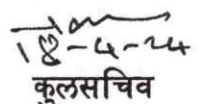 18-4-24
कुलसचिव